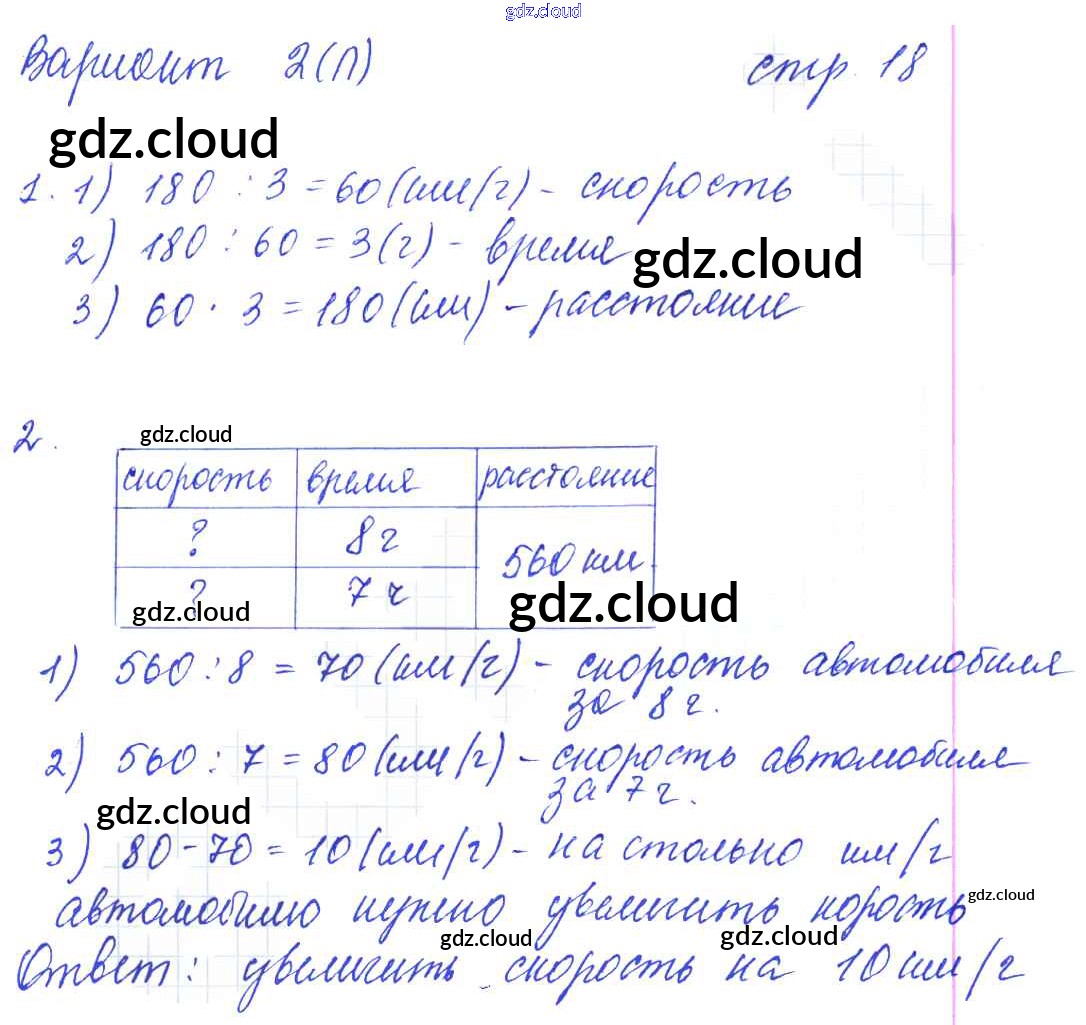 gdz.cloud
Вариант 2(П) стр. 18
gdz.cloud
1. 1) 180 : 3 = 60 (км/ч) - скорость
2) 180 : 60 = 3 (ч) - время
gdz.cloud
3) 60 · 3 = 180 (км) - расстояние
2.
gdz.cloud
скорость время расстояние
? 8 ч
560 км
? 7 ч
gdz.cloud
gdz.cloud
1) 560 : 8 = 70 (км/ч) - скорость автомобиля
за 8 ч.
2) 560 : 7 = 80 (км/ч) - скорость автомобиля
за 7 ч.
gdz.cloud
3) 80 - 70 = 10 (км/ч) - на столько км/ч
автомобилю нужно увеличить корость
gdz.cloud
gdz.cloud
gdz.cloud
Ответ: увеличить скорость на 10 км/ч